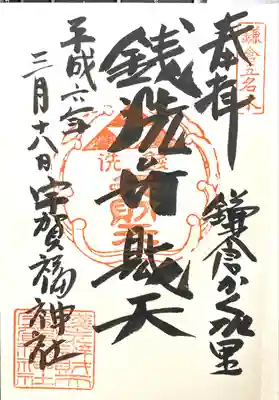 鎌倉五名水
奉拝
鎌倉かくれ里
銭洗弁財天
平成六年
三月十八日
宇賀福神社